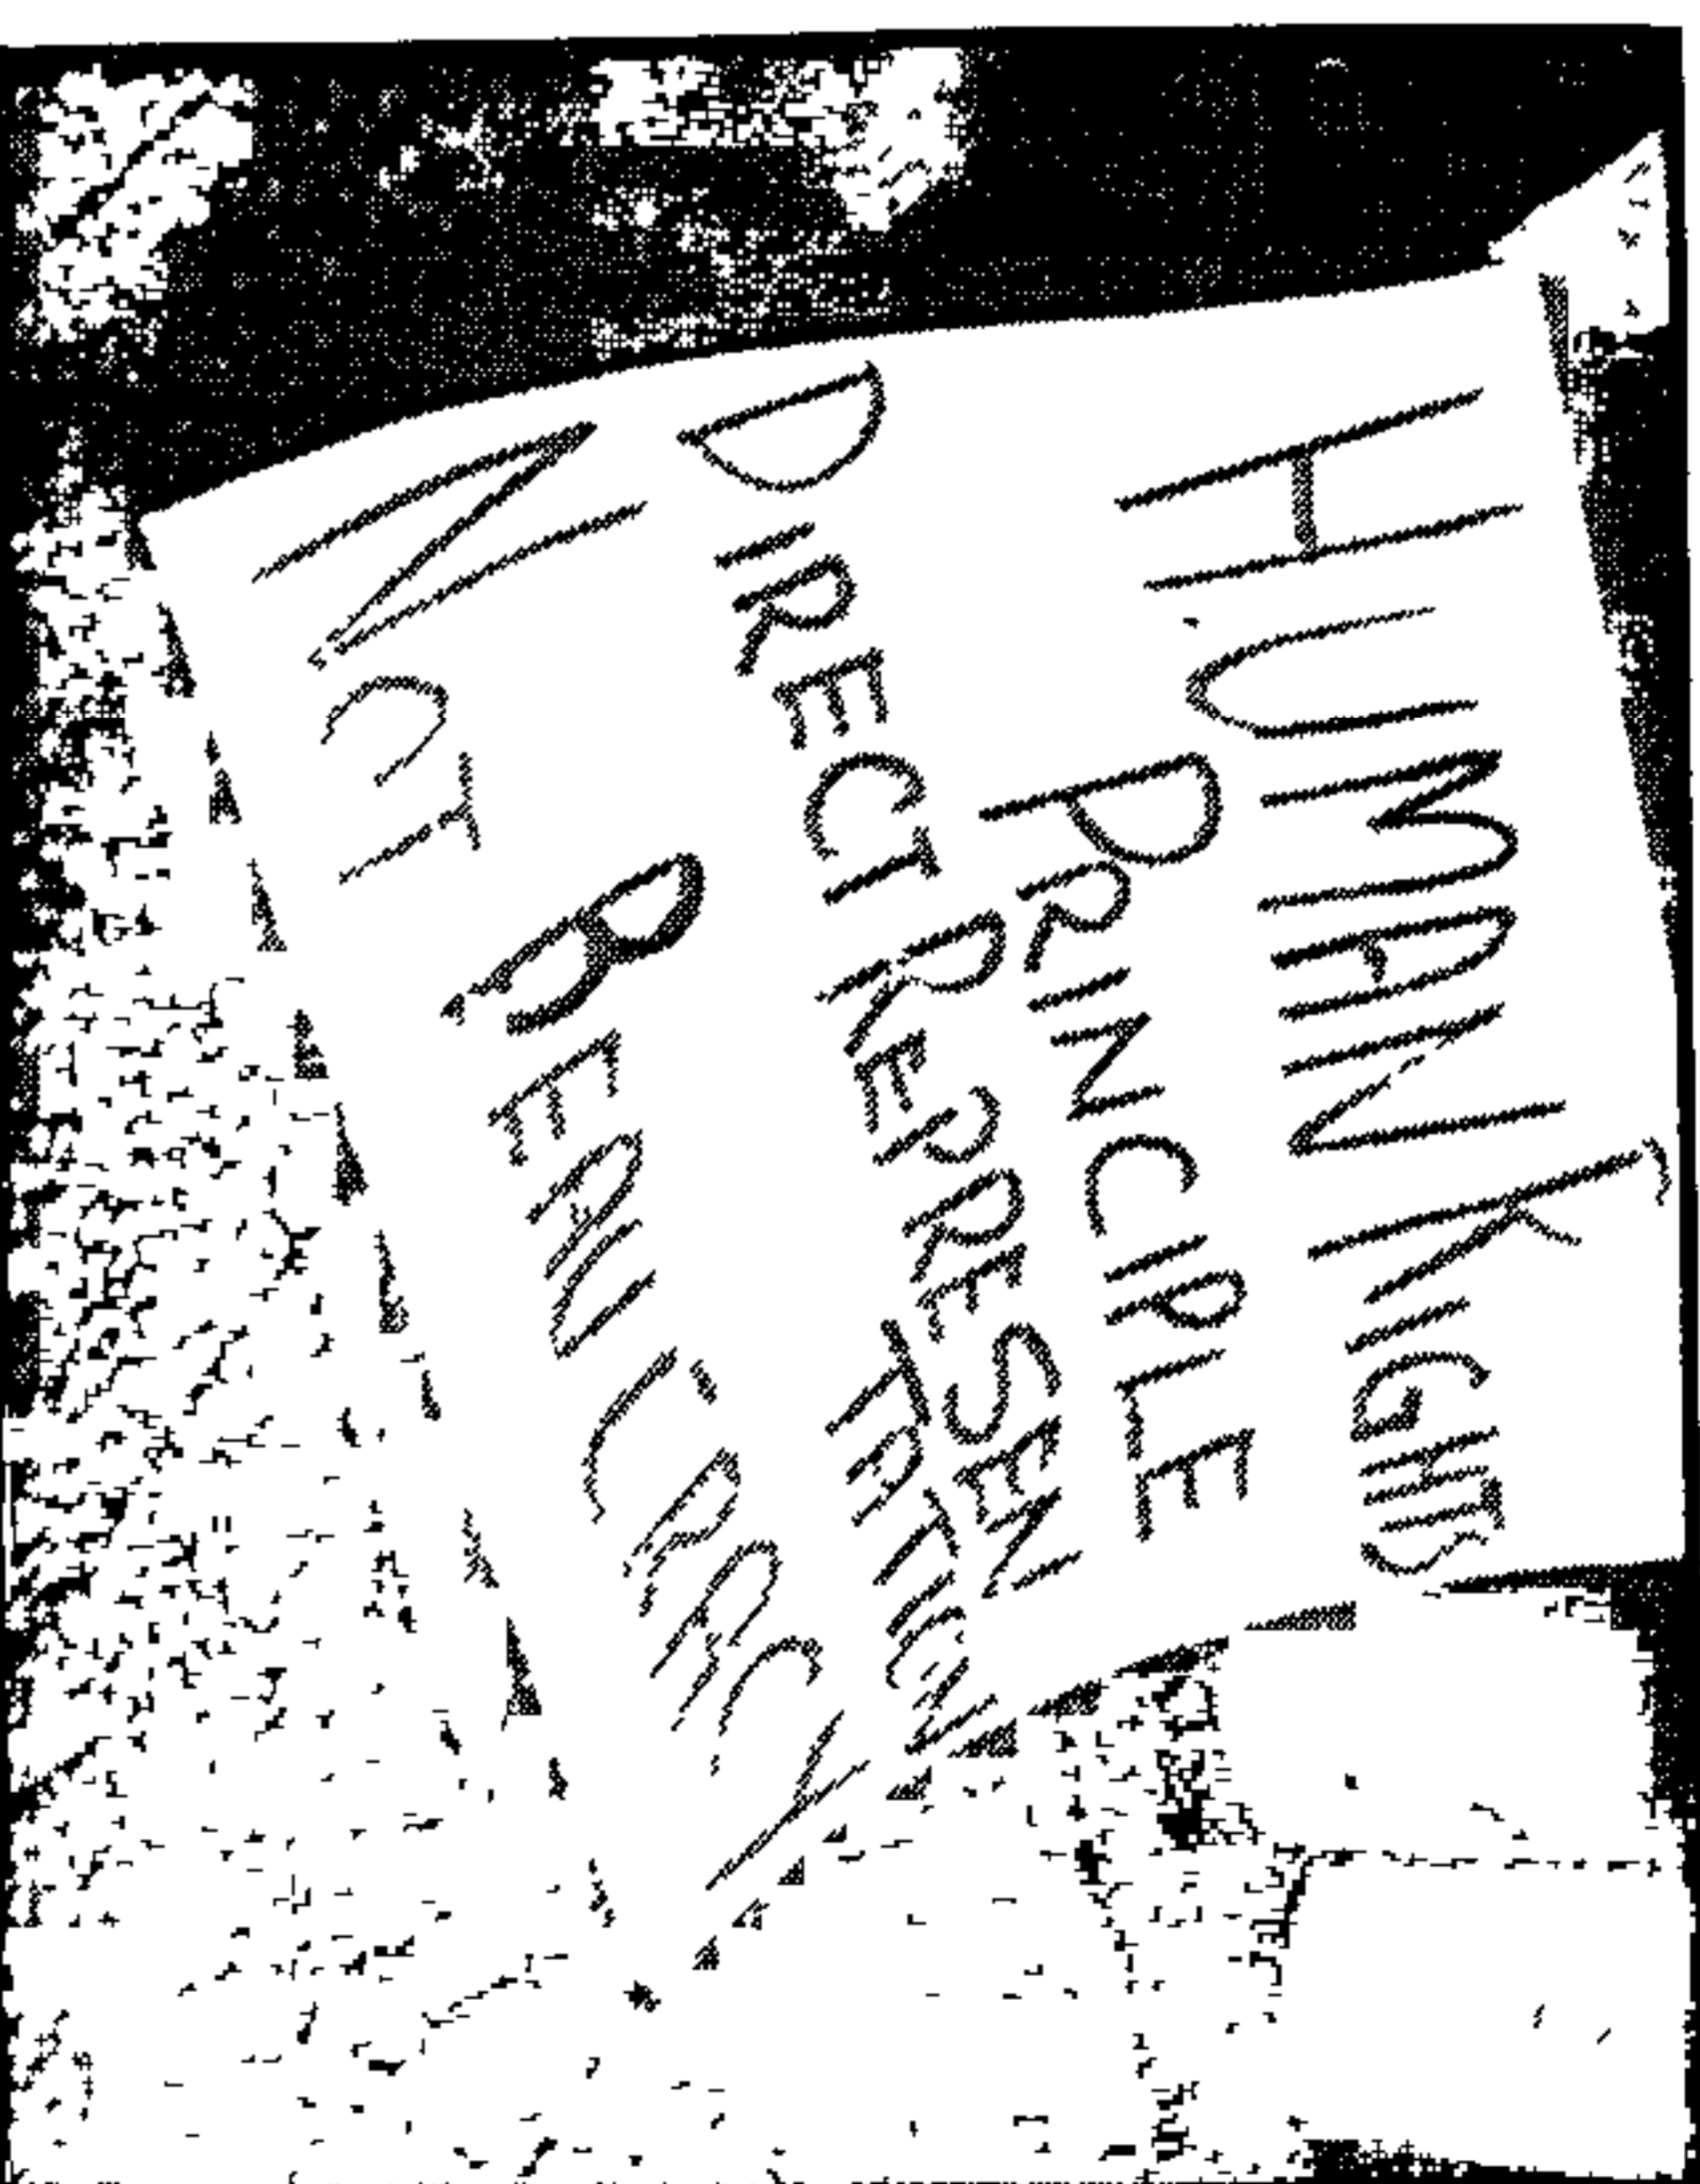 HUMAN RIGHTS
PRINCIPLE
DIRECT REPRESEN
TATION
NOT BEAUCRACY